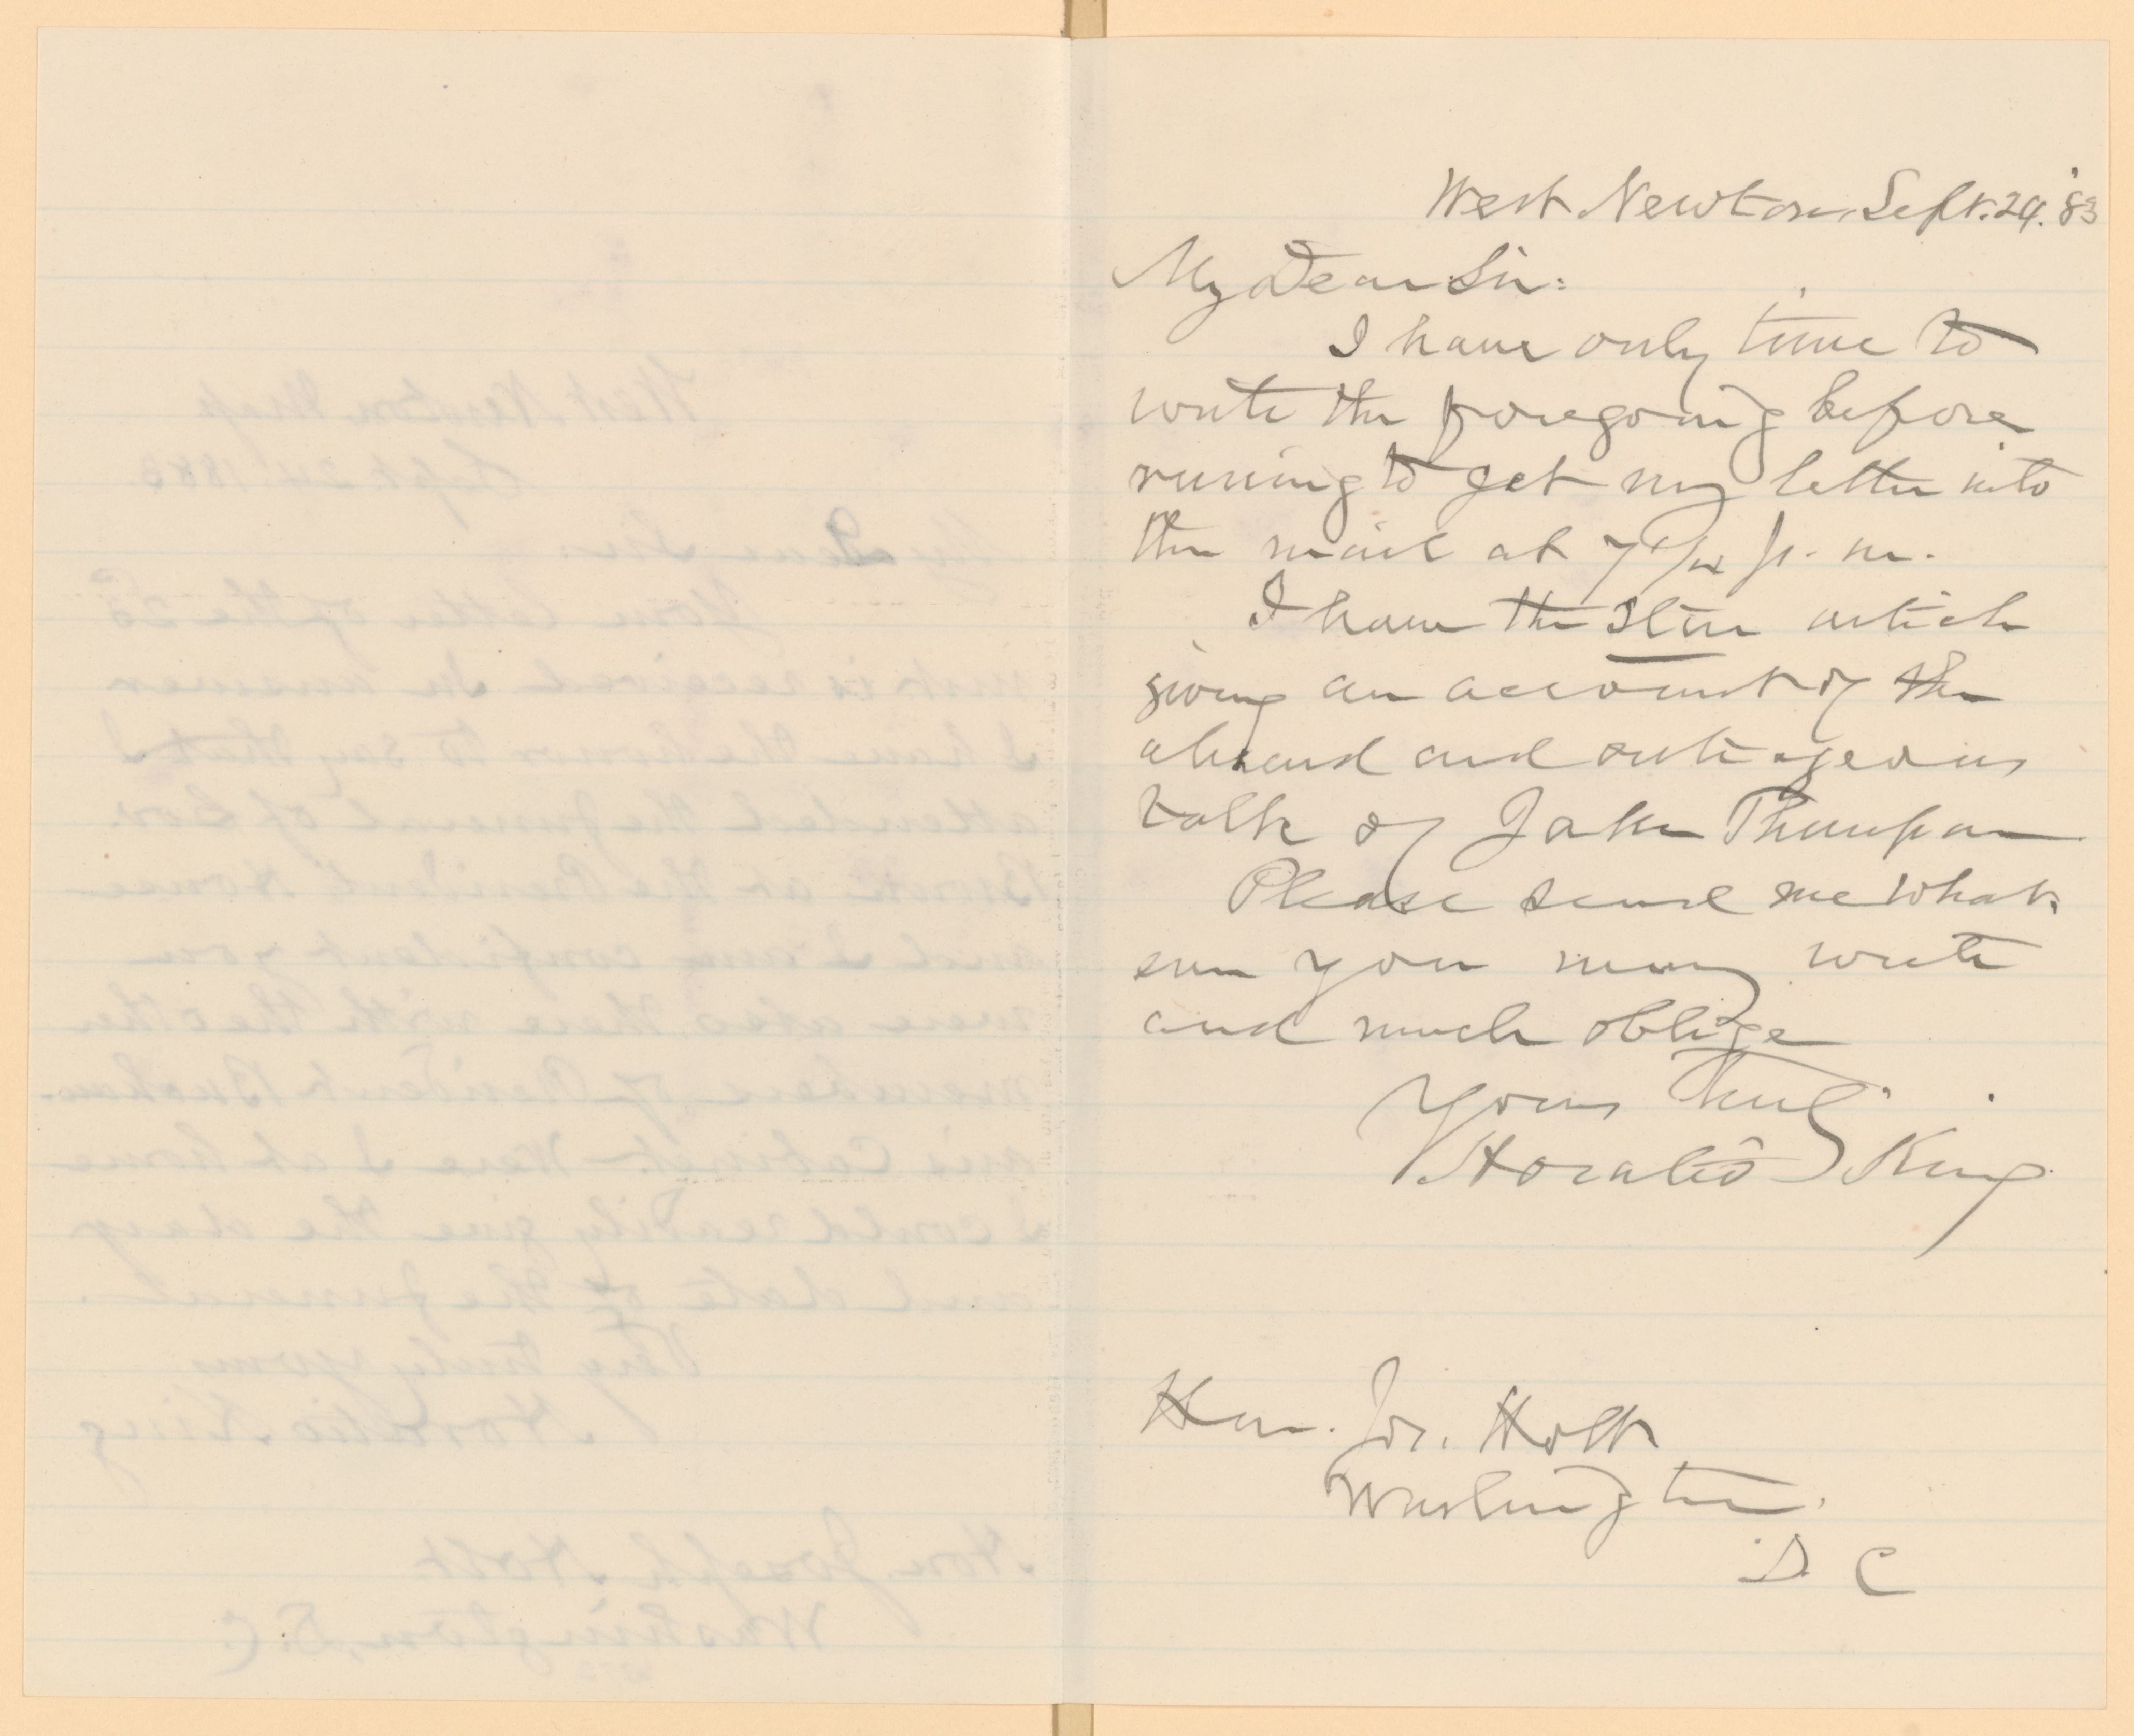 West Newton, Sept. 24. '83
My Dear Sir:
I have only time to
write the foregoing before
runing to get my letter into
the mail at 7 1/4 p. m.
I have the Star article
giving an account of the
absurd and outrageous
talk of Jake Thompson
Please send me what-
ever you may write
and much oblige
Yours truly
Horatio King
Hon. Jos. Holt
Washington.
D. C
West Newton, Mass
Sept. 24, 1883
My Dear Sir:
Your letter of the 20
inst is received. In answer
I have the honor to say that I
attended the funeral of Gov.
Brown at the President's House
and I am confident you
were also there with the other
members of President Buchan-
an's Cabinet. Were I at home
I could readily give the day
and date of the funeral.
Very truly yours
Horatio King
Hon. Joseph Holt
Washington, D. C.